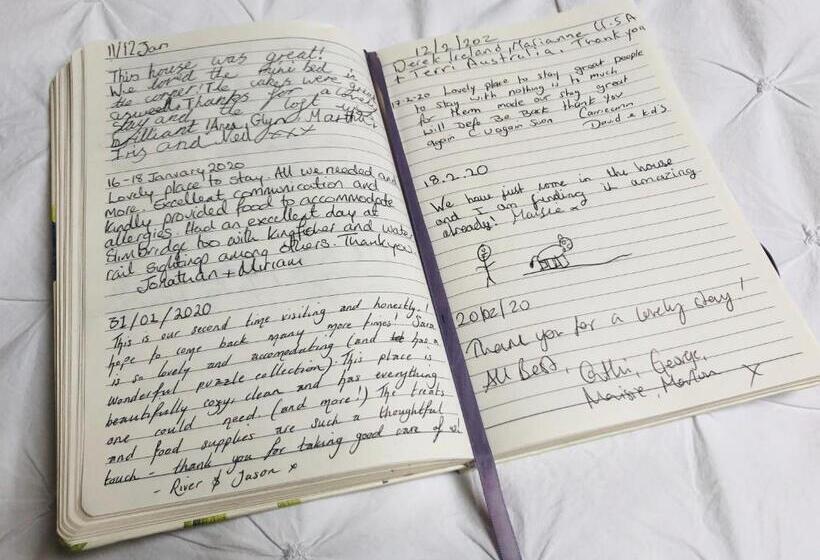 11/12 Jan
This house was great!
We loved the bed in
the corner! The cakes were
Thanks for a lovely
stay and the loft was
brilliant! Glyn, Martha,
Iris and Neil xxx
16-18 January 2020
Lovely place to stay. All we needed and
more. Excellent communication and
kindly provided food to accommodate
allergies. Had an excellent day at
Slimbridge too with kingfisher and water
rail sightings among others. Thankyou.
Jonathan + Miriam
31/01/2020
This is our second time visiting and honestly, I
hope to come back many more times! Sara
is so lovely and accomodating (and has a
wonderful puzzle collection). This place is
beautifully cozy, clean and has everything
one could need (and more!) The treats
and food supplies are such a thoughtful
touch - thank you for taking good care of us!
- River & Jason x
12/2/202
Derek Ireland, Marianne U.S.A
+ Terri Australia. Thank you
17.2.20 Lovely place to stay great people
to stay with nothing is to much
for them made our stay great
will Defo Be Back thank you
again C u again Soon
David & kids
18.2.20
We have just come in the house
and I am finding it amazing
already! Maisie x
20/02/20
Thank you for a lovely stay!
All Best, George,
Maisie, x